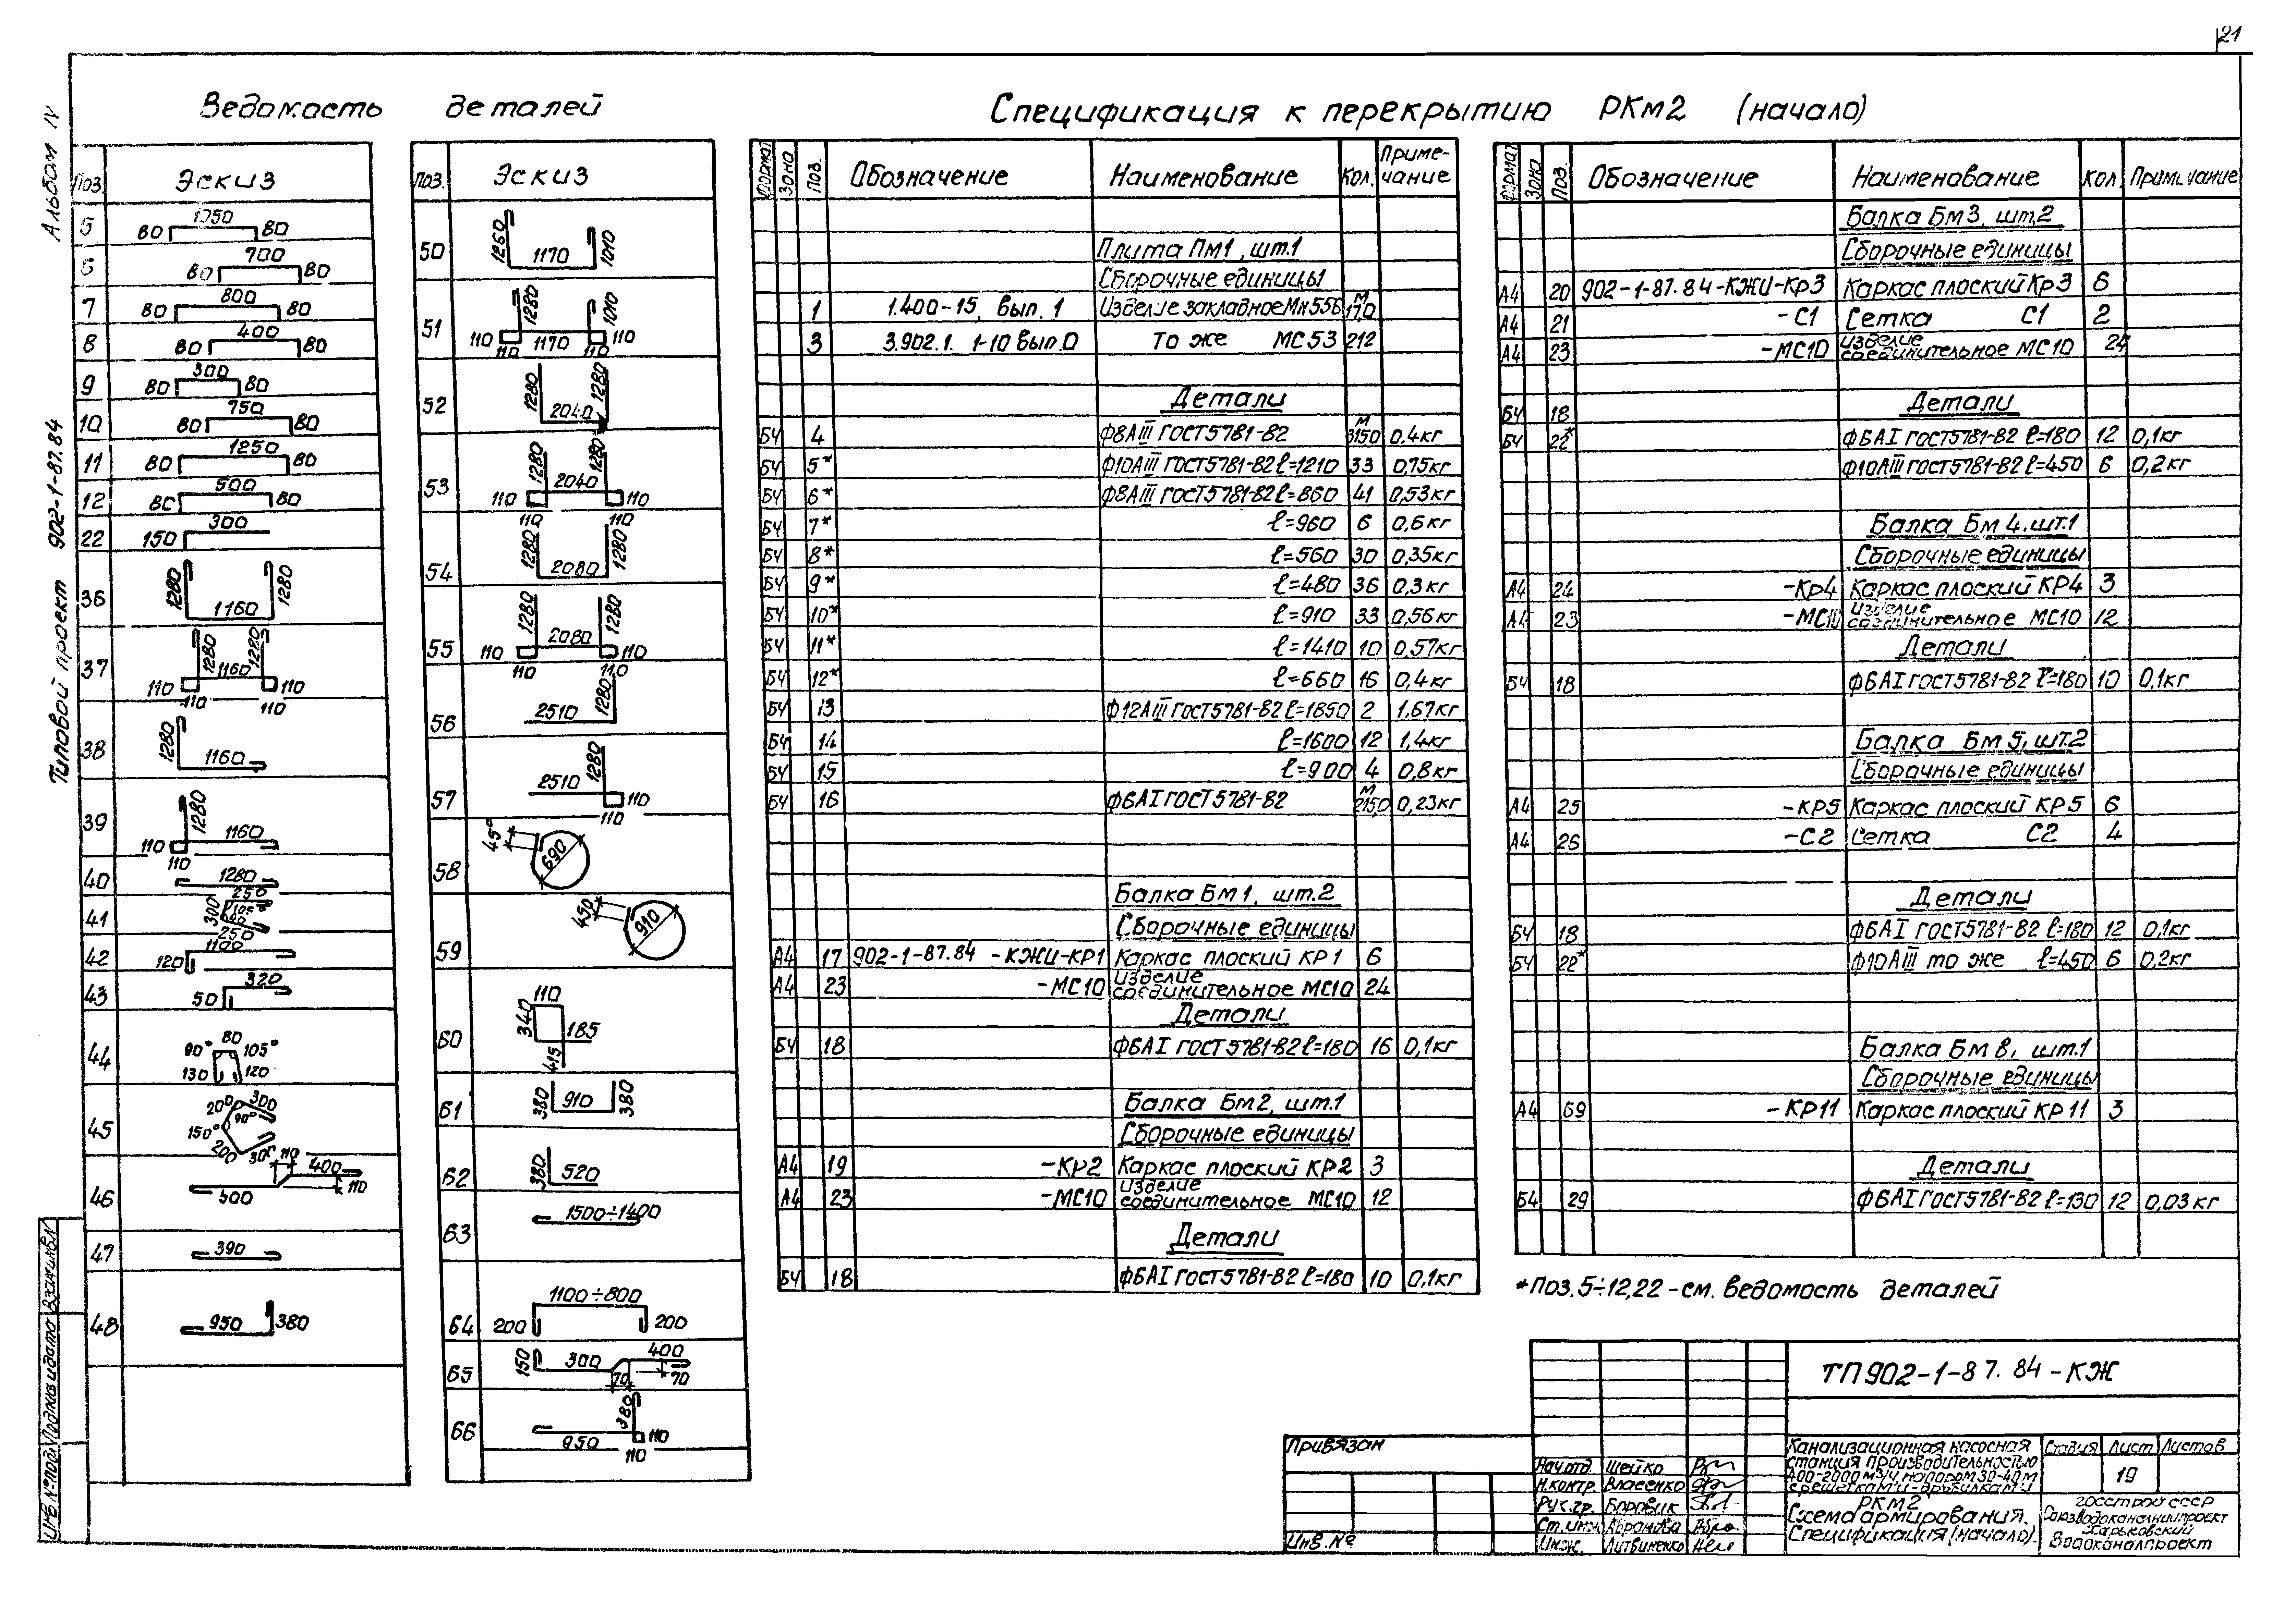 21
Альбом IV
Типовой проект 902-1-87.84
Ведомость деталей
Поз. Эскиз
5 80 1050 80
6 80 700 80
7 80 800 80
8 80 400 80
9 80 300 80
10 80 750 80
11 80 1250 80
12 80 500 80
22 150 300
36 1280 1160 1280
37 1280 1280 110 1160 110 110 110
38 1280 1160
39 1280 110 1160 110
40 1280
41 300 250 250
42 120 1100
43 50 320
44 90° 80 105° 130 120
45 200 300 90° 150° 200
46 500 110 400 110
47 390
48 950 380
Поз. Эскиз
50 1260 1170 1010
51 1280 1010 110 110 1170 110 110
52 1280 2040 1280
53 1280 1280 110 2040 110 110 110
54 1280 2080 1280
55 1280 1280 110 2080 110 110 110
56 2510 1280
57 2510 1280 110 110
58 690
59 450 910
60 110 340 185 415
61 380 910 380
62 380 520
63 1500÷1400
64 1100÷800 200 200
65 150 300 400 70 70
66 380 950 110 110
Спецификация к перекрытию РКм2 (начало)
Формат Зона Поз. Обозначение Наименование Кол. Примечание
Плита Пм1, шт.1
Сборочные единицы
1 1.400-15, вып. 1 Изделие закладное Мн556 М 17,0
3 3.902.1. 1-10 вып.0 То же МС53 212
Детали
БЧ 4 Ф8АIII ГОСТ5781-82 М 3150 0,4кг
БЧ 5* Ф10АIII ГОСТ5781-82 ℓ=1210 33 0,75кг
БЧ 6* Ф8АIII ГОСТ5781-82 ℓ=860 41 0,53кг
БЧ 7* ℓ=960 6 0,6кг
БЧ 8* ℓ=560 30 0,35кг
БЧ 9* ℓ=480 36 0,3кг
БЧ 10* ℓ=910 33 0,56кг
БЧ 11* ℓ=1410 10 0,57кг
БЧ 12* ℓ=660 16 0,4кг
БЧ 13 Ф12АIII ГОСТ5781-82 ℓ=1850 2 1,67кг
БЧ 14 ℓ=1600 12 1,4кг
БЧ 15 ℓ=900 4 0,8кг
БЧ 16 Ф6АI ГОСТ5781-82 М 215,0 0,23кг
Балка Бм1, шт.2
Сборочные единицы
А4 17 902-1-87.84 -КЖИ-КР1 Каркас плоский КР1 6
А4 23 -МС10 Изделие соединительное МС10 24
Детали
БЧ 18 Ф6АI ГОСТ5781-82 ℓ=180 16 0,1кг
Балка Бм2, шт.1
Сборочные единицы
А4 19 -Кр2 Каркас плоский КР2 3
А4 23 -МС10 Изделие соединительное МС10 12
Детали
БЧ 18 Ф6АI ГОСТ5781-82 ℓ=180 10 0,1кг
Формат Зона Поз. Обозначение Наименование Кол. Примечание
Балка Бм3, шт.2
Сборочные единицы
А4 20 902-1-87.84-КЖИ-Кр3 Каркас плоский Кр3 6
А4 21 -С1 Сетка С1 2
А4 23 -МС10 Изделие соединительное МС10 24
Детали
БЧ 18
БЧ 22* Ф6АI ГОСТ5781-82 ℓ=180 12 0,1кг
Ф10АIII ГОСТ5781-82 ℓ=450 6 0,2кг
Балка Бм4, шт.1
Сборочные единицы
А4 24 -Кр4 Каркас плоский КР4 3
А4 23 -МС10 Изделие соединительное МС10 12
Детали
БЧ 18 Ф6АI ГОСТ5781-82 ℓ=180 10 0,1кг
Балка Бм5, шт.2
Сборочные единицы
А4 25 -КР5 Каркас плоский КР5 6
А4 26 -С2 Сетка С2 4
Детали
БЧ 18 Ф6АI ГОСТ5781-82 ℓ=180 12 0,1кг
БЧ 22* Ф10АIII то же ℓ=450 6 0,2кг
Балка Бм8, шт.1
Сборочные единицы
А4 69 -КР11 Каркас плоский КР11 3
Детали
Б4 29 Ф6АI ГОСТ5781-82 ℓ=130 12 0,03кг
*Поз.5÷12,22-см. ведомость деталей
ТП902-1-87.84-КЖ
Привязан
Инв.№
Нач.отд. Шейко
Н.контр. Власенко
Рук.гр. Боровик
Ст.инж. Абрамова
Инж. Литвиненко
Канализационная насосная
станция производительностью
400-2000 м³/ч, напором 30-40м
с решетками-дробилками
РКм2
Схема армирования.
Спецификация (начало).
Стадия Лист Листов
19
Госстрой СССР
Союзводоканалниипроект
Харьковский
Водоканалпроект
Инв.№подл. Подпись и дата Взам.инв.№